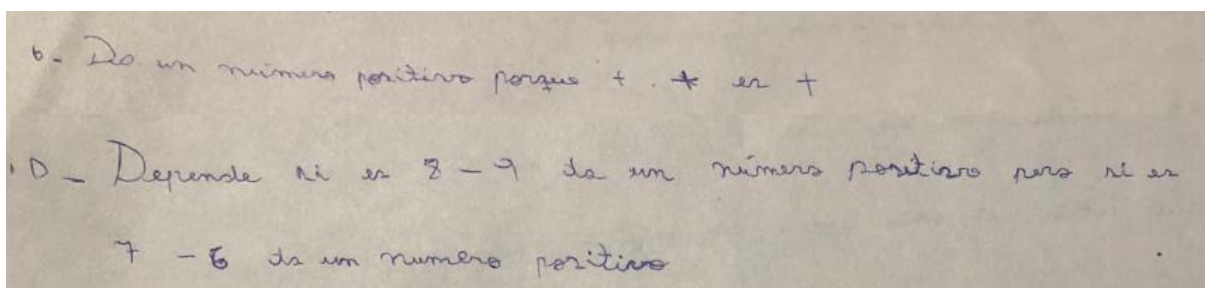 6- Da un número positivo porque + . + es +
D - Depende si es 8 - 9 da un número positivo pero si es
7 - 6 da un numero positivo